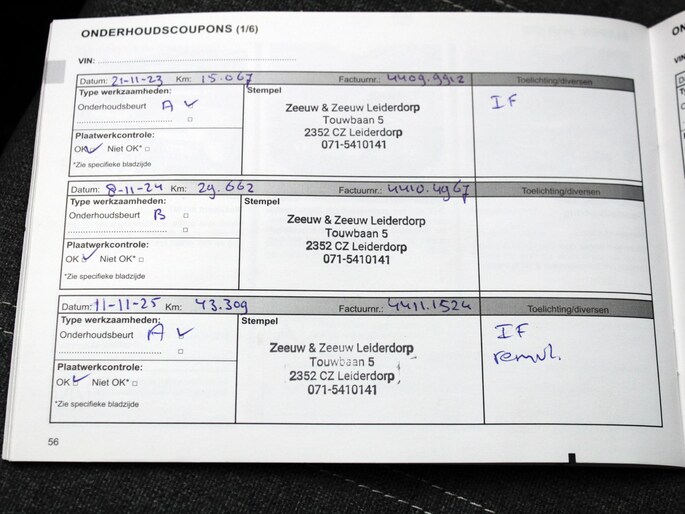 ONDERHOUDSCOUPONS (1/6)
VIN:
Datum: 21-11-23 Km: 15.067 Factuurnr.: 4409.9912 Toelichting/diversen
Type werkzaamheden: Stempel
Onderhoudsbeurt A ✓ IF
Zeeuw & Zeeuw Leiderdorp
Touwbaan 5
2352 CZ Leiderdorp
071-5410141
Plaatwerkcontrole:
OK ✓ Niet OK*
*Zie specifieke bladzijde
Datum: 8-11-24 Km: 29.662 Factuurnr.: 4410.4967 Toelichting/diversen
Type werkzaamheden: Stempel
Onderhoudsbeurt B
Zeeuw & Zeeuw Leiderdorp
Touwbaan 5
2352 CZ Leiderdorp
071-5410141
Plaatwerkcontrole:
OK ✓ Niet OK*
*Zie specifieke bladzijde
Datum: 11-11-25 Km: 43.309 Factuurnr.: 4411.1524 Toelichting/diversen
Type werkzaamheden: Stempel
Onderhoudsbeurt A ✓ IF
remvl.
Zeeuw & Zeeuw Leiderdorp
Touwbaan 5
2352 CZ Leiderdorp
071-5410141
Plaatwerkcontrole:
OK ✓ Niet OK*
*Zie specifieke bladzijde
56